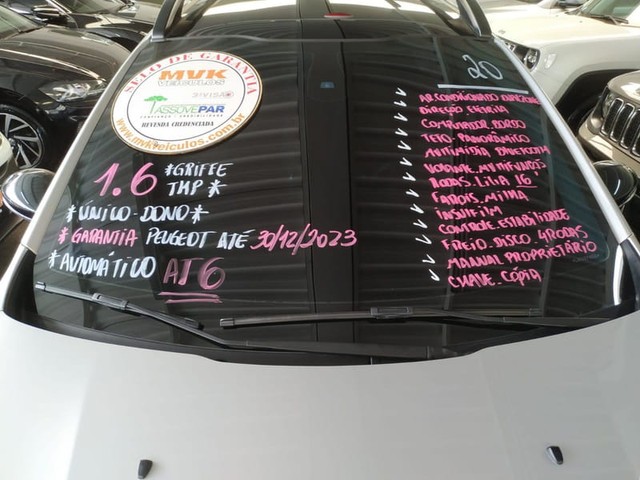 SELO DE GARANTIA
MVK
VEÍCULOS
ASSOVEPAR
REVENDA CREDENCIADA
www.mvkveiculos.com.br
1.6 *GRIFFE
THP*
*ÚNICO-DONO*
*GARANTIA PEUGEOT ATÉ 30/12/2023
*AUTOMÁTICO AT6
20
AR.CONDICIONADO
DIREÇÃO
COMPUTADOR.BORDO
TETO PANORÂMICO
MULTIMÍDIA
VOLANTE
RODAS.LIGA 16"
FARÓIS.MILHA
INSULFILM
CONTROLE.ESTABILIDADE
FREIO.DISCO.4RODAS
MANUAL.PROPRIETÁRIO
CHAVE.CÓPIA